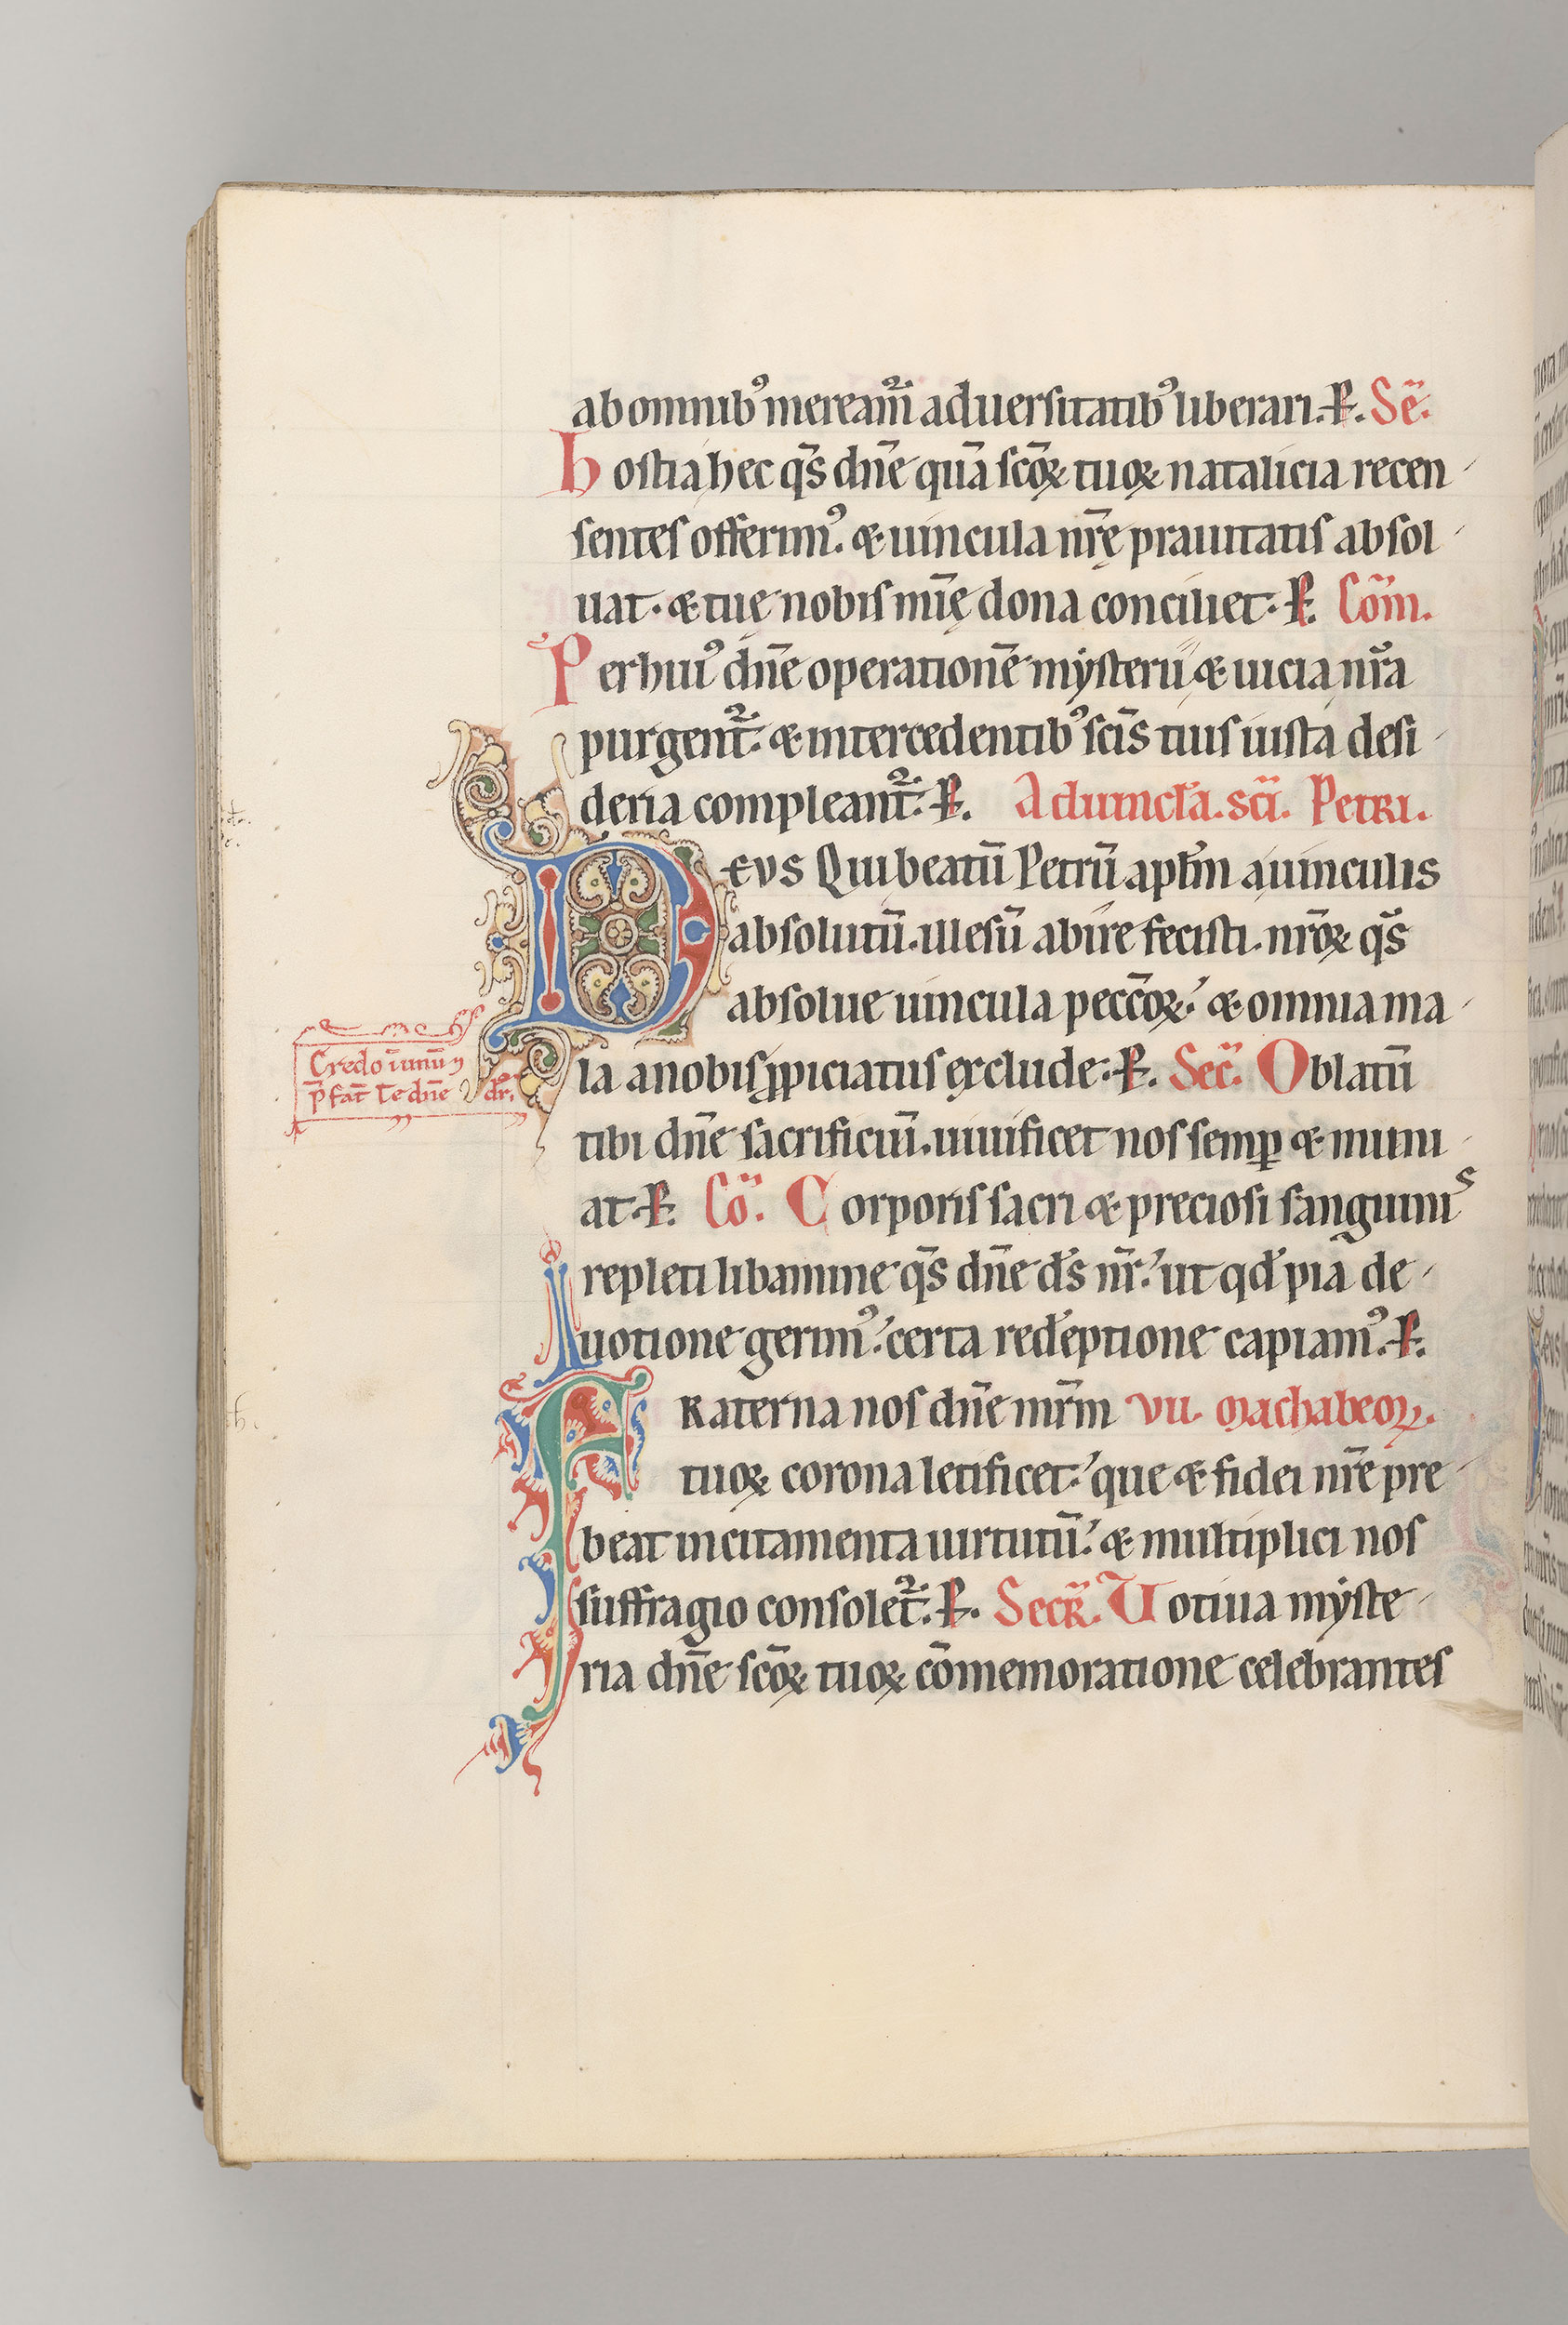 ab omnib᾽ mereamᷣ aduersitatib᾽ liberari. P. Sē.
Hostia hec q̄s dn̄e quā scōꝝ tuoꝝ natalicia recen
sentes offerim᾽. & uincula nr̄ę prauitatis absol
uat. & tuę nobis mīę dona conciliet. P. Com̄.
Per hui᾽ dn̄e operationē mẏsterii & uicia nr̄a
purgent᷑. & intercedentib᾽ scīs tuis iusta desi
deria compleant᷑. P. Ad uincl̄a. scī. Petri.
Deus Qui beatū Petrū apl̄m a uinculis
absolutū. illesū abire fecisti. nr̄oꝝ q̄s
absolue uincula pecc̄oꝝ. & omnia ma
la a nobis ꝓpiciatus exclude. P. Sec̄. Oblatū
Credo ī unū ⁊
p̄fat̄ Te dn̄e dr̄.
tibi dn̄e sacrificiū. uiuificet nos semꝑ & muni
at. P. Cō. Corporis sacri & preciosi sanguinis
repleti libamine q̄s dn̄e ds̄ nr̄. ut qd̄ pia de
uotione gerim᾽. certa red̄eptione capiam᾽. P.
Fraterna nos dn̄e mr̄m vii. Machabeoꝝ.
tuoꝝ corona letificet. que & fidei nr̄e pre
beat incitamenta uirtutū. & multiplici nos
suffragio consolet᷑. P. Secr̄. Uotiua mẏste
ria dn̄e scōꝝ tuoꝝ cōmemoratione celebrantes